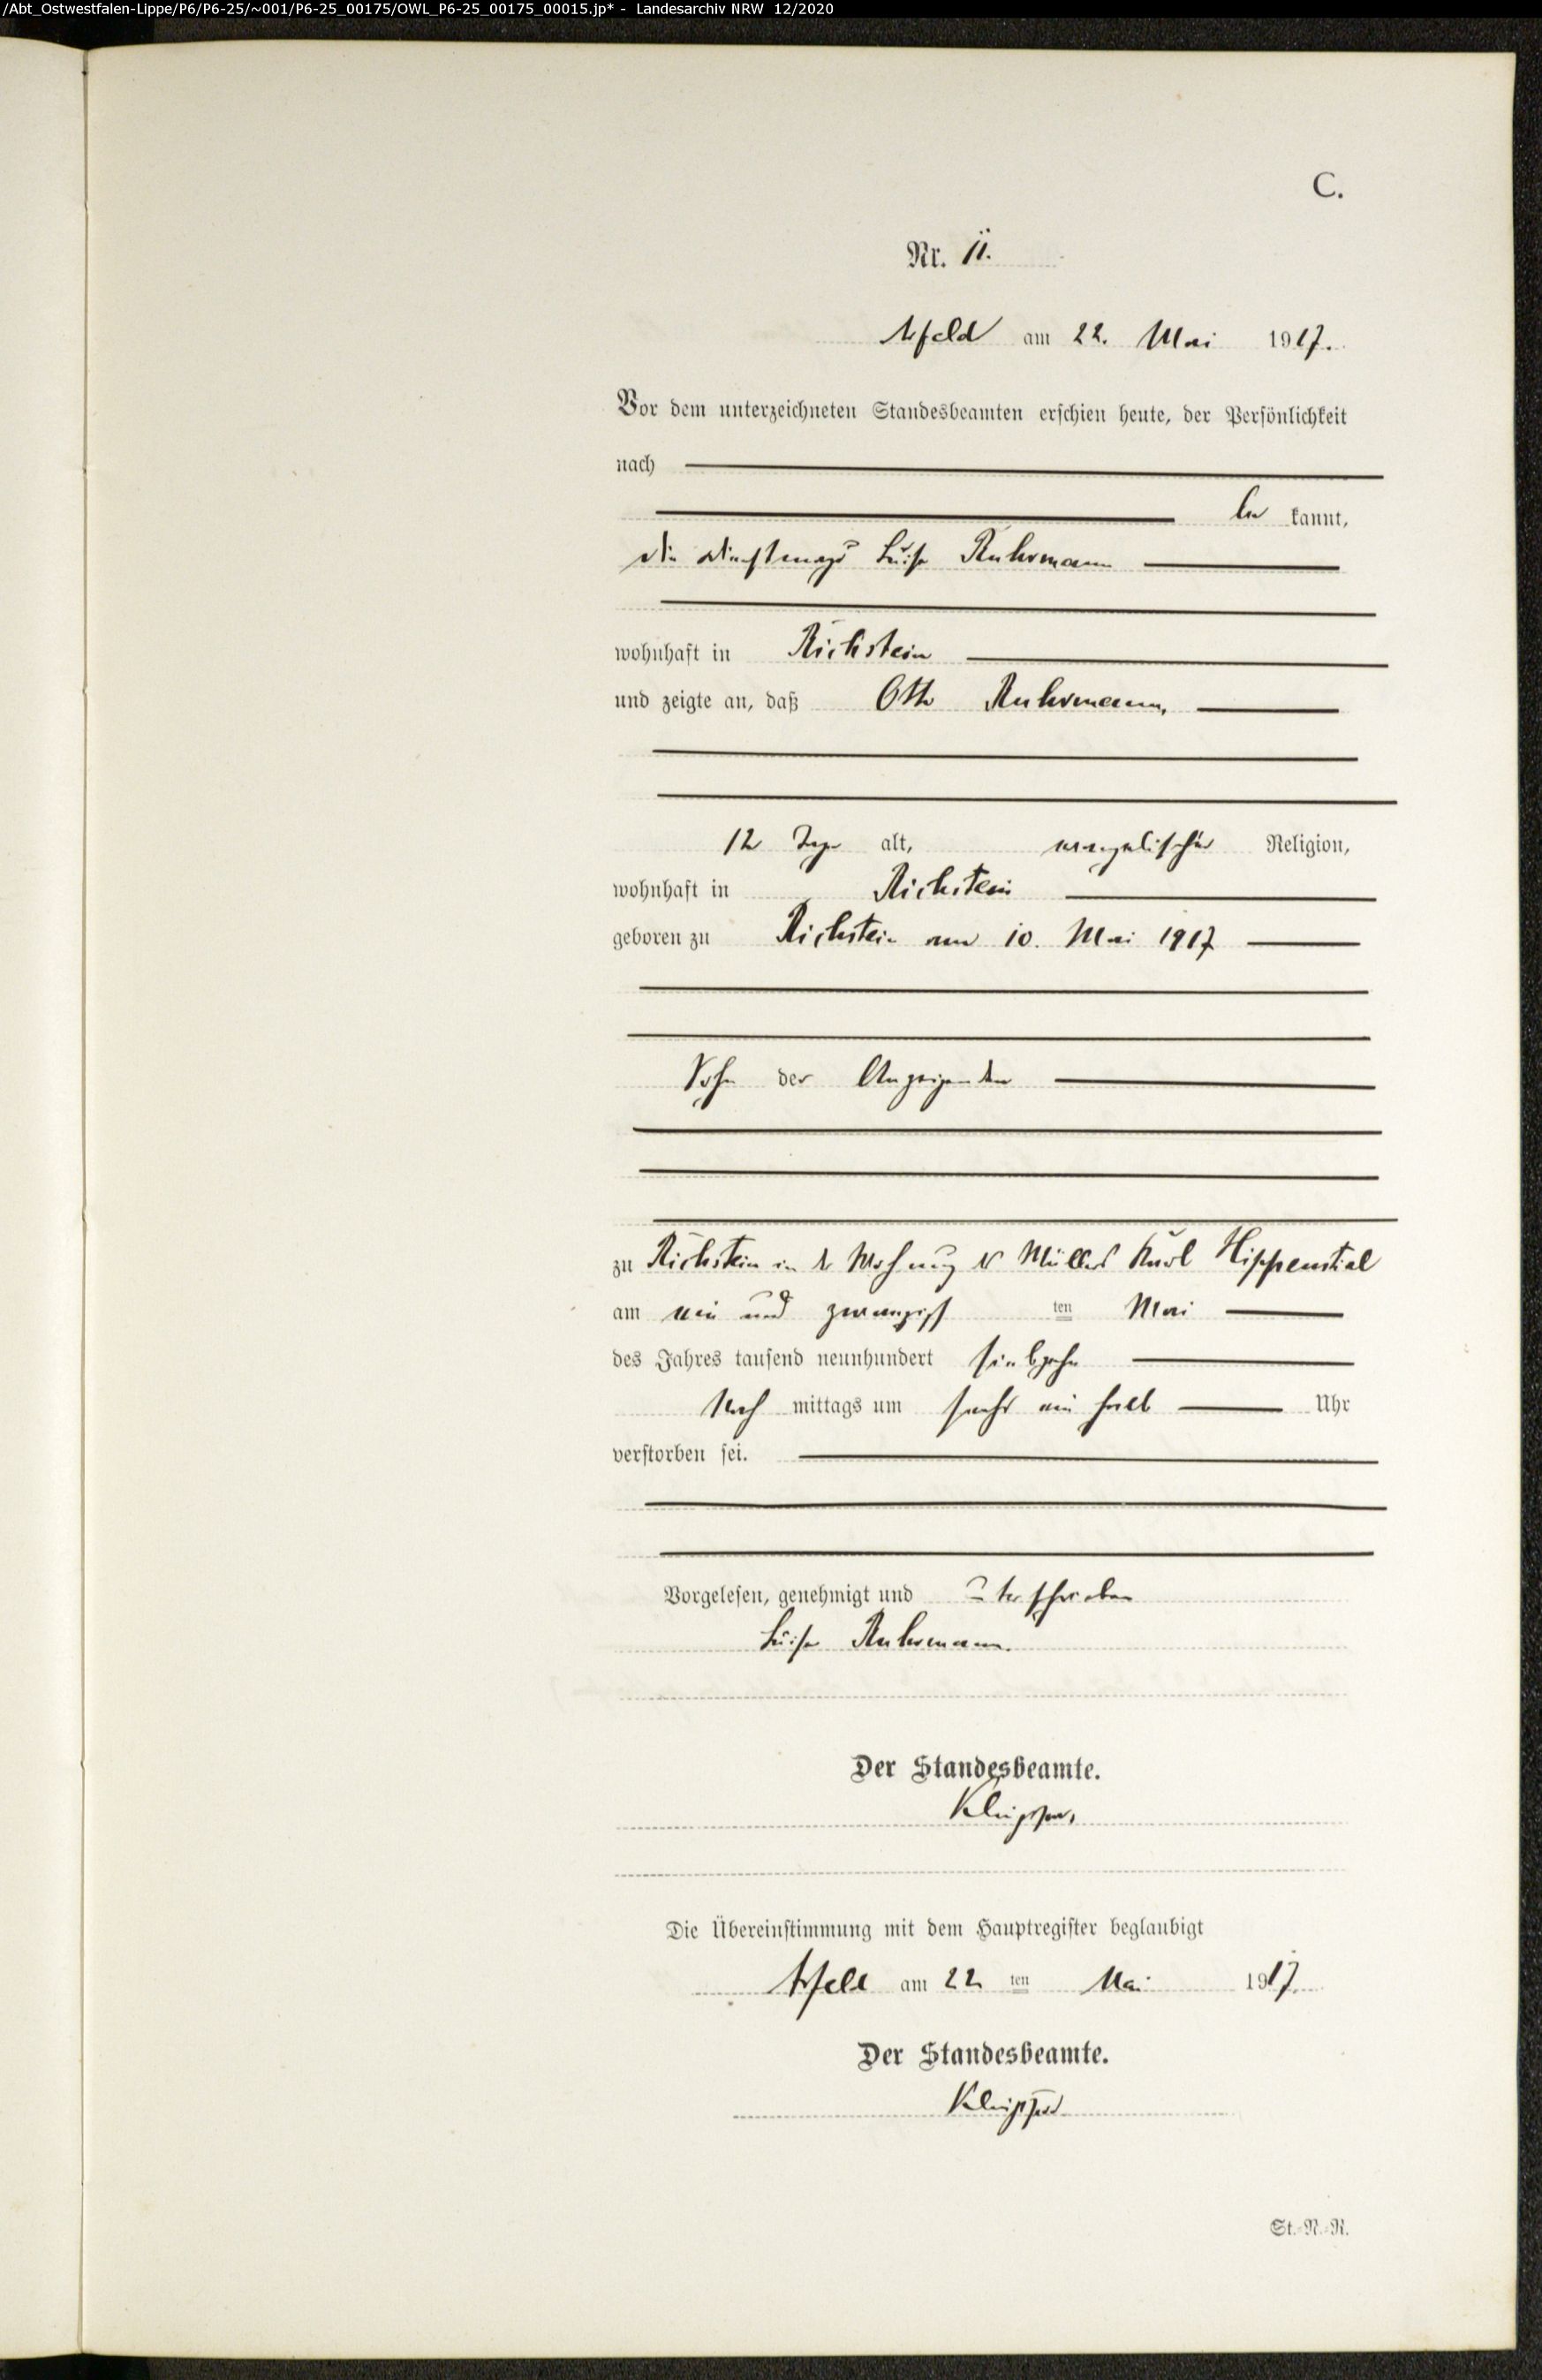 /Abt_Ostwestfalen-Lippe/P6/P6-25/~001/P6-25_00175/OWL_P6-25_00175_00015.jp* - Landesarchiv NRW 12/2020
C.
Nr. 11.
Arfeld am 22. Mai 1917.
Vor dem unterzeichneten Standesbeamten erschien heute, der Persönlichkeit
nach
be kannt,
die Dienstmagd Luise Ruhrmann
wohnhaft in Richstein
und zeigte an, daß Otto Ruhrmann,
12 Tage alt, evangelischer Religion,
wohnhaft in Richstein
geboren zu Richstein am 10. Mai 1917
Sohn der Anzeigenden
zu Richstein in der Wohnung des Müllers Karl Hippenstiel
am ein und zwanzigst ten Mai
des Jahres tausend neunhundert siebzehn
Nach mittags um sechs ein halb Uhr
verstorben sei.
Vorgelesen, genehmigt und unterschrieben
Luise Ruhrmann.
Der Standesbeamte.
Die Übereinstimmung mit dem Hauptregister beglaubigt
Arfeld am 22 ten Mai 1917.
Der Standesbeamte.
St.-N.-R.